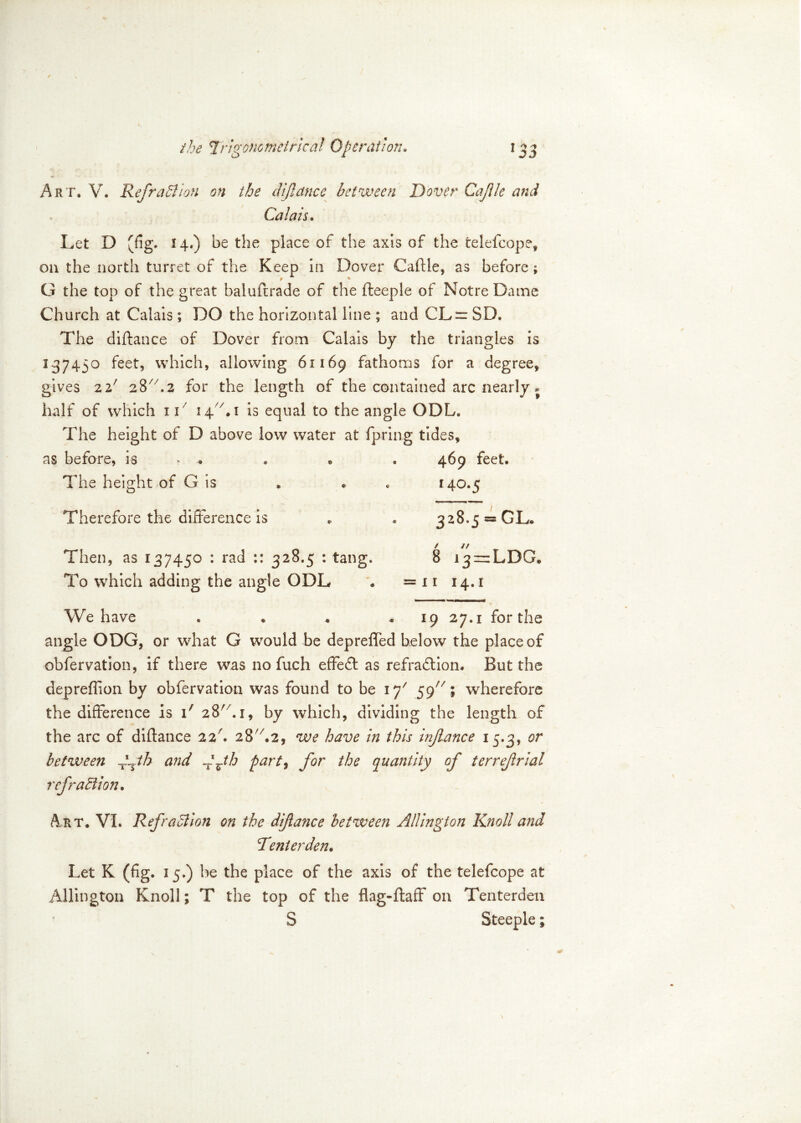 the Trigonometrical Operation. 133
ART. V. Refraction on the diſtance between Dover Caſtle and
Calais.
Let D (fig. 14.) be the place of the axis of the teleſcope,
on the north turret of the Keep in Dover Caſtle, as before;
G the top of the great baluſtrade of the ſteeple of Notre Dame
Church at Calais; DO the horizontal line; and CL=SD.
The diſtance of Dover from Calais by the triangles is
137450 feet, which, allowing 61169 fathoms for a degree,
gives 22′ 28″.2 for the length of the contained arc nearly;
half of which 11′ 14″.1 is equal to the angle ODL.
The height of D above low water at ſpring tides,
as before, is . . . . . 469 feet.
The height of G is . . . 140.5
Therefore the difference is . . 328.5 = GL.
Then, as 137450 : rad :: 328.5 : tang. 8′ 13″=LDG.
To which adding the angle ODL . = 11 14.1
We have . . . . 19 27.1 for the
angle ODG, or what G would be depreſſed below the place of
obſervation, if there was no ſuch effect as refraction. But the
depreſſion by obſervation was found to be 17′ 59″; wherefore
the difference is 1′ 28″.1, by which, dividing the length of
the arc of diſtance 22′. 28″.2, we have in this inſtance 15.3, or
between 1/15th and 1/16th part, for the quantity of terreſtrial
refraction.
ART. VI. Refraction on the diſtance between Allington Knoll and
Tenterden.
Let K (fig. 15.) be the place of the axis of the teleſcope at
Allington Knoll; T the top of the flag-ſtaff on Tenterden
S Steeple;